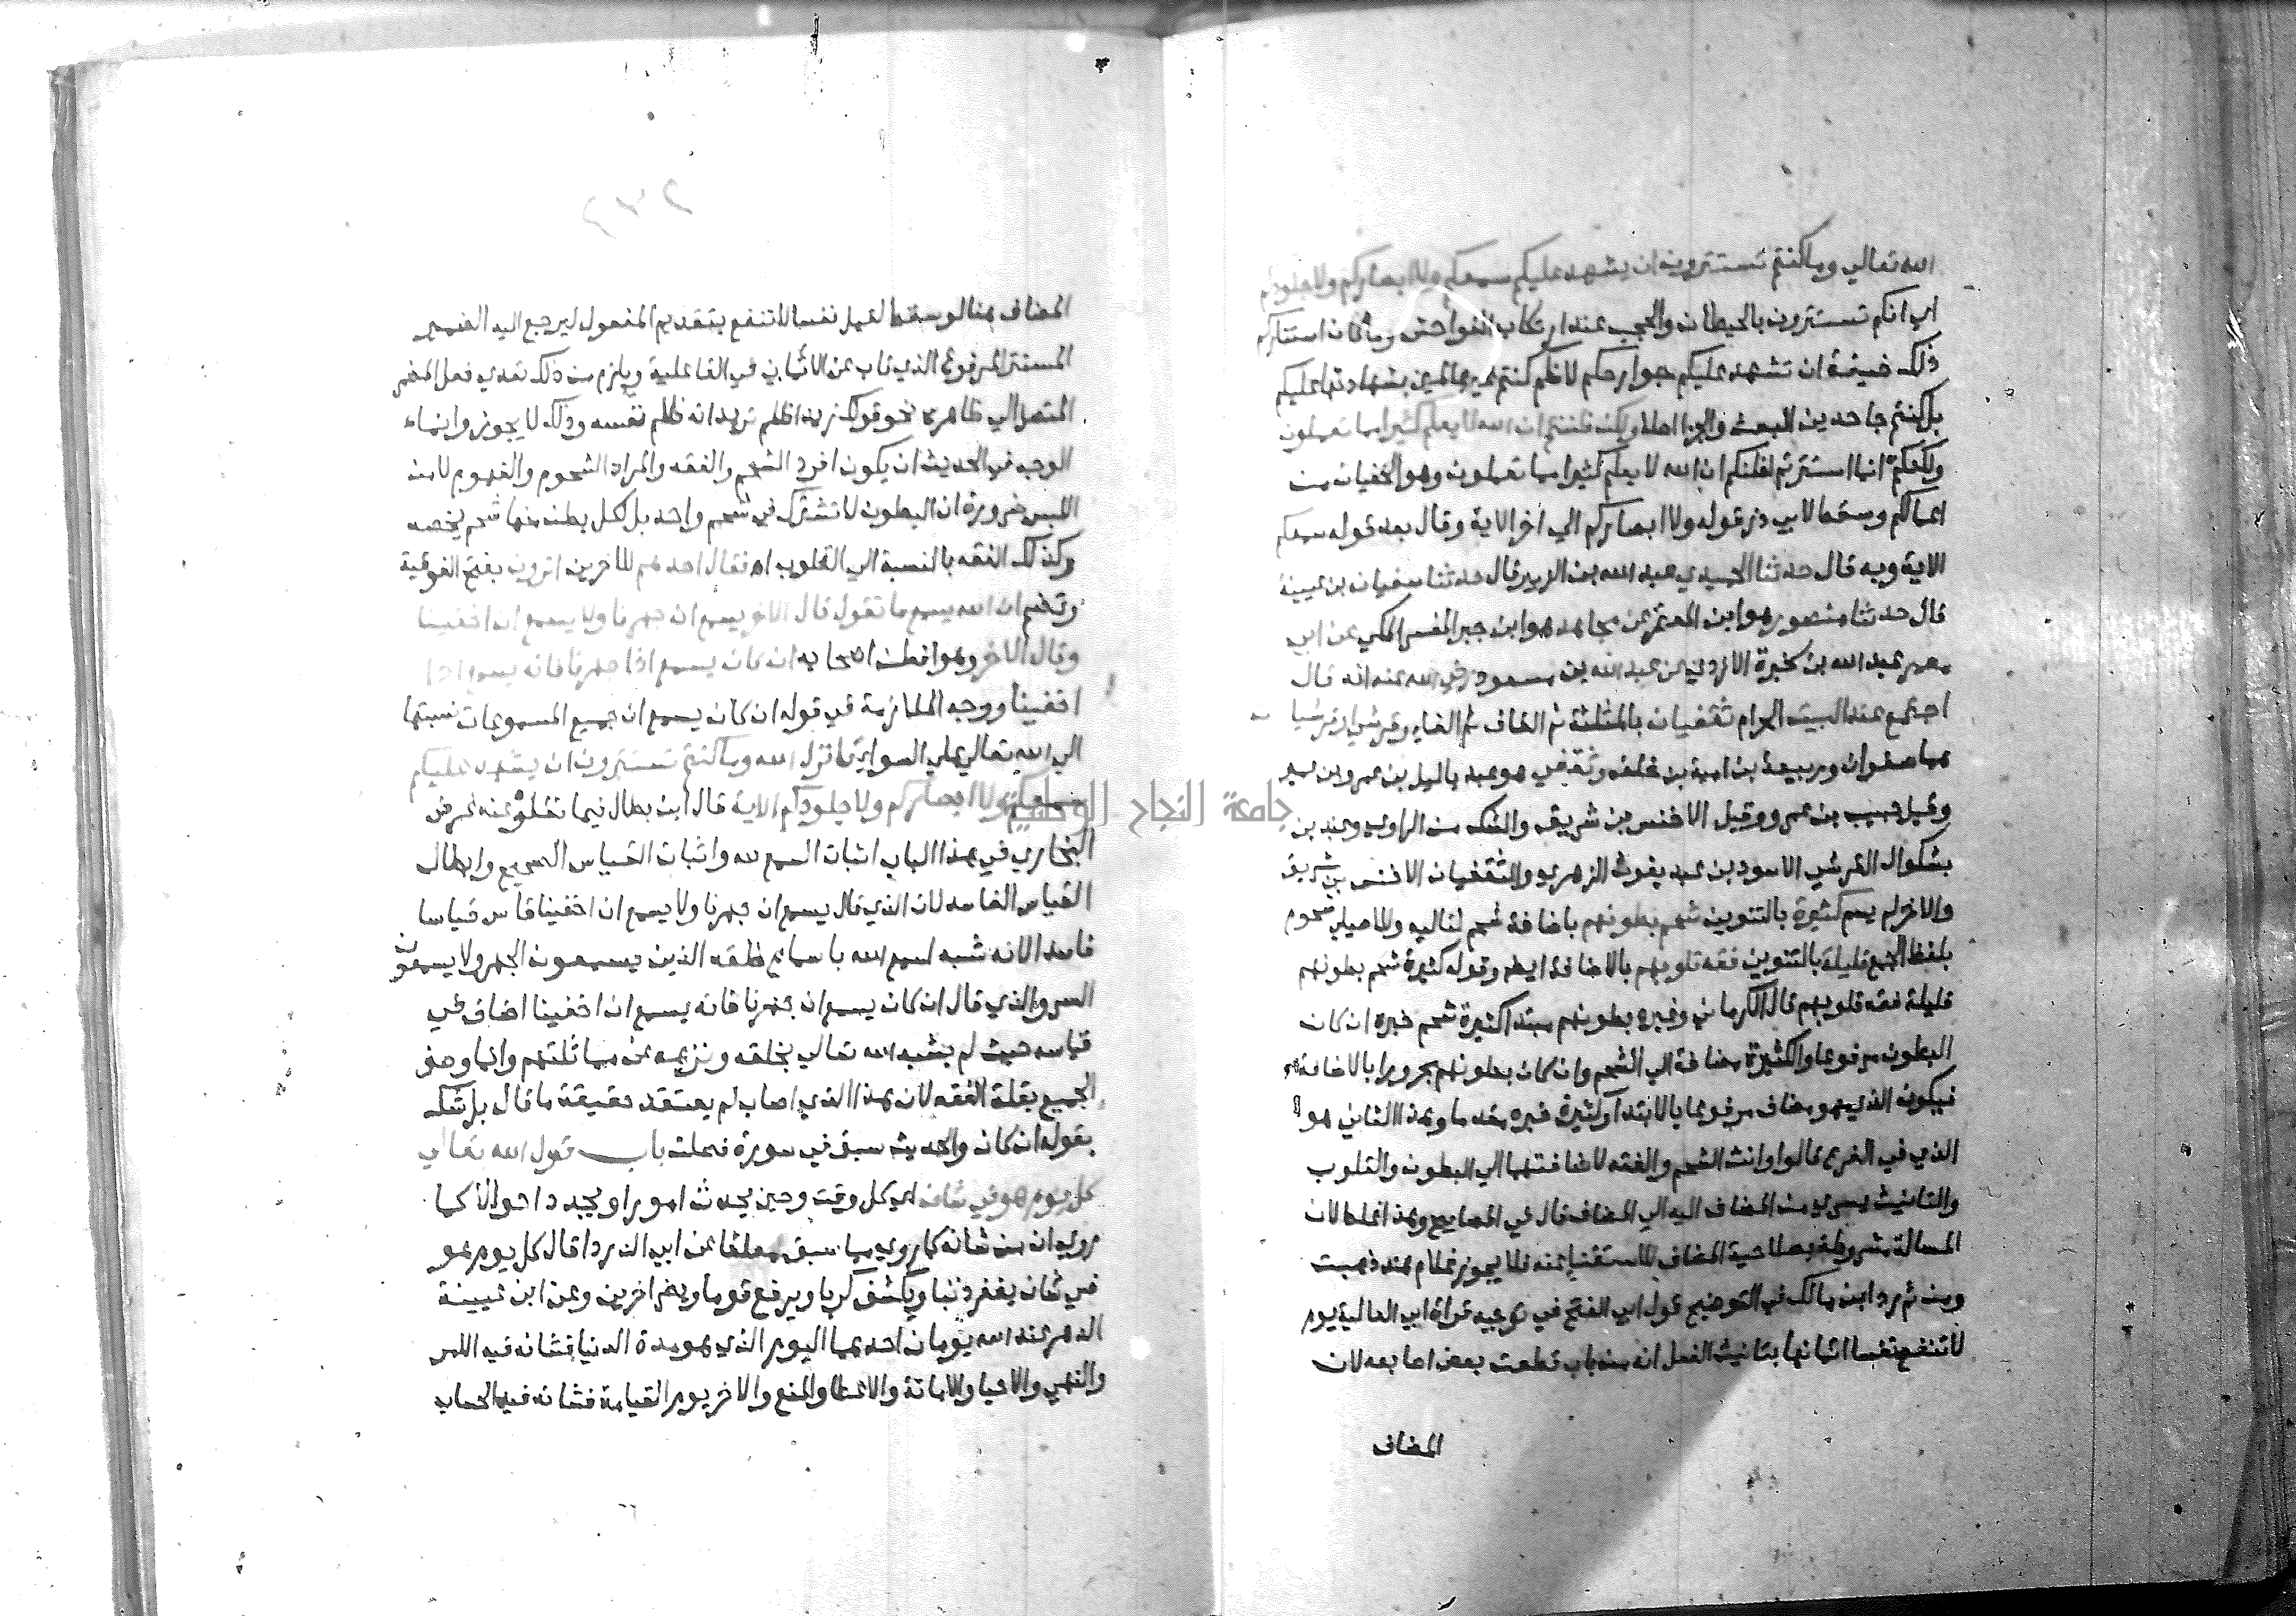 الله تعالي وما كنتم تستترون ان يشهد عليكم سمعكم ولا ابصاركم ولا جلودكم
اي انكم تستترون بالحيطان والحجب عند ارتكاب الفواحش وما كان استتاركم
ذلك خيفة ان تشهد عليكم جوارحكم لانكم كنتم غير عالمين بشهادتها عليكم
بل كنتم جاحدين البعث والجزا اصلا ولكن ظننتم ان الله لا يعلم كثيرا مما تعملون
ولكنكم انما استترتم لظنكم ان الله لا يعلم كثيرا مما تعملون وهو الخفيات من
اعمالكم وسقط لابي ذر قوله ولا ابصاركم الي اخر الاية وقال بعد قوله سمعكم
الاية وبه قال حدثنا الحميدي عبد الله بن الزبير قال حدثنا سفيان بن عيينة
قال حدثنا منصور هو ابن المعتمر عن مجاهد هو ابن جبر المفسر المكي عن ابي
معمر عبد الله بن سخبرة الازدي عن عبد الله بن مسعود رضي الله عنه انه قال
اجتمع عند البيت الحرام ثقفيان بالمثلثة ثم القاف ثم الفاء وقرشي او قرشيا
هما صفوان وربيعة بن امية بن خلف وثقفي هو عبد ياليل بن عمرو بن عمير
وقيل حبيب بن عمرو وقيل الاخنس بن شريق والشك من الراوي وعند بن
بشكوال القرشي الاسود بن عبد يغوث الزهري والثقفيان الاخنس بن شريق
والاخر لم يسم كثيرة بالتنوين شحم بطونهم باضافة شحم لتاليه وللاصيلي شحوم
بلفظ الجمع قليلة بالتنوين فقه قلوبهم بالاضافة ايضا وقوله كثيرة شحم بطونهم
قليلة فقه قلوبهم قال الكرماني وغيره بطونهم مبتدا كثيرة شحم خبره ان كان
البطون مرفوعا والكثيرة مضافة الي الشحم وان كان بطونهم مجرورا بالاضافة
فيكون الذي هو مضاف مرفوعا بالابتدا وكثيرة خبره مقدما وهذا الثاني هو
الذي في الفرع قالوا وانث الشحم والفقه لاضافتهما الي البطون والقلوب
والتانيث يسري من المضاف اليه الي المضاف قال في المصابيح وهذا غلط لان
المسالة مشروطة بصلاحية المضاف للاستغنا عنه فلا يجوز غلام هند ذهبت
ومن ثم رد ابن مالك في التوضيح قول ابي الفتح في توجيه قراة ابي العالية يوم
لا تنفع نفسا ايمانها بتانيث الفعل انه من باب قطعت بعض اصابعه لان
المضاف
المضاف هنا لو سقط لقيل نفسا لا تنفع بتقديم المفعول ليرجع اليه الضمير
المستتر المرفوع الذي ناب عن الايمان في الفاعلية ويلزم من ذلك تعدي فعل المضمر
المتصل الي ظاهره نحو قولك زيدا ظلم تريد انه ظلم نفسه وذلك لا يجوز وانما
الوجه في الحديث ان يكون افرد الشحم والفقه والمراد الشحوم والفهوم لامن
اللبس ضرورة ان البطون لا تشترك في شحم واحد بل لكل بطن منها شحم يخصه
وكذلك الفقه بالنسبة الي القلوب اه فقال احدهم للاخرين اترون بفتح الفوقية
وتضم ان الله يسمع ما نقول قال الاخر يسمع ان جهرنا ولا يسمع ان اخفينا
وقال الاخر وهو افطن اصحابه ان كان يسمع اذا جهرنا فانه يسمع اذا
اخفينا ووجه الملازمة في قوله ان كان يسمع ان جميع المسموعات نسبتها
الي الله تعالي علي السوا فانزل الله وما كنتم تستترون ان يشهد عليكم
سمعكم ولا ابصاركم ولا جلودكم الاية قال ابن بطال فيما نقلوه عنه غرض
جامعة النجاح الوطنية
البخاري في هذا الباب اثبات السمع لله واثبات القياس الصحيح وابطال
القياس الفاسد لان الذي قال يسمع ان جهرنا ولا يسمع ان اخفينا قاس قياسا
فاسدا لانه شبه سمع الله باسماع خلقه الذين يسمعون الجهر ولا يسمعون
السر والذي قال ان كان يسمع ان جهرنا فانه يسمع ان اخفينا اصاب في
قياسه حيث لم يشبه الله تعالي بخلقه ونزهه عن مماثلتهم وانما وصف
الجميع بقلة الفقه لان هذا الذي اصاب لم يعتقد حقيقة ما قال بل شك
بقوله ان كان والحديث سبق في سورة فصلت باب قول الله تعالي
كل يوم هو في شان اي كل وقت وحين يحدث امورا ويجدد احوالا كما
روي ان من شانه كما روي مما سبق معلقا عن ابي الدردا قال كل يوم هو
في شان يغفر ذنبا ويكشف كربا ويرفع قوما ويضع اخرين وعن ابن عيينة
الدهر عند الله يومان احدهما اليوم الذي هو مدة الدنيا فشانه فيه الامر
والنهي والاحيا والاماتة والاعطا والمنع والاخر يوم القيامة فشانه فيه الحساب